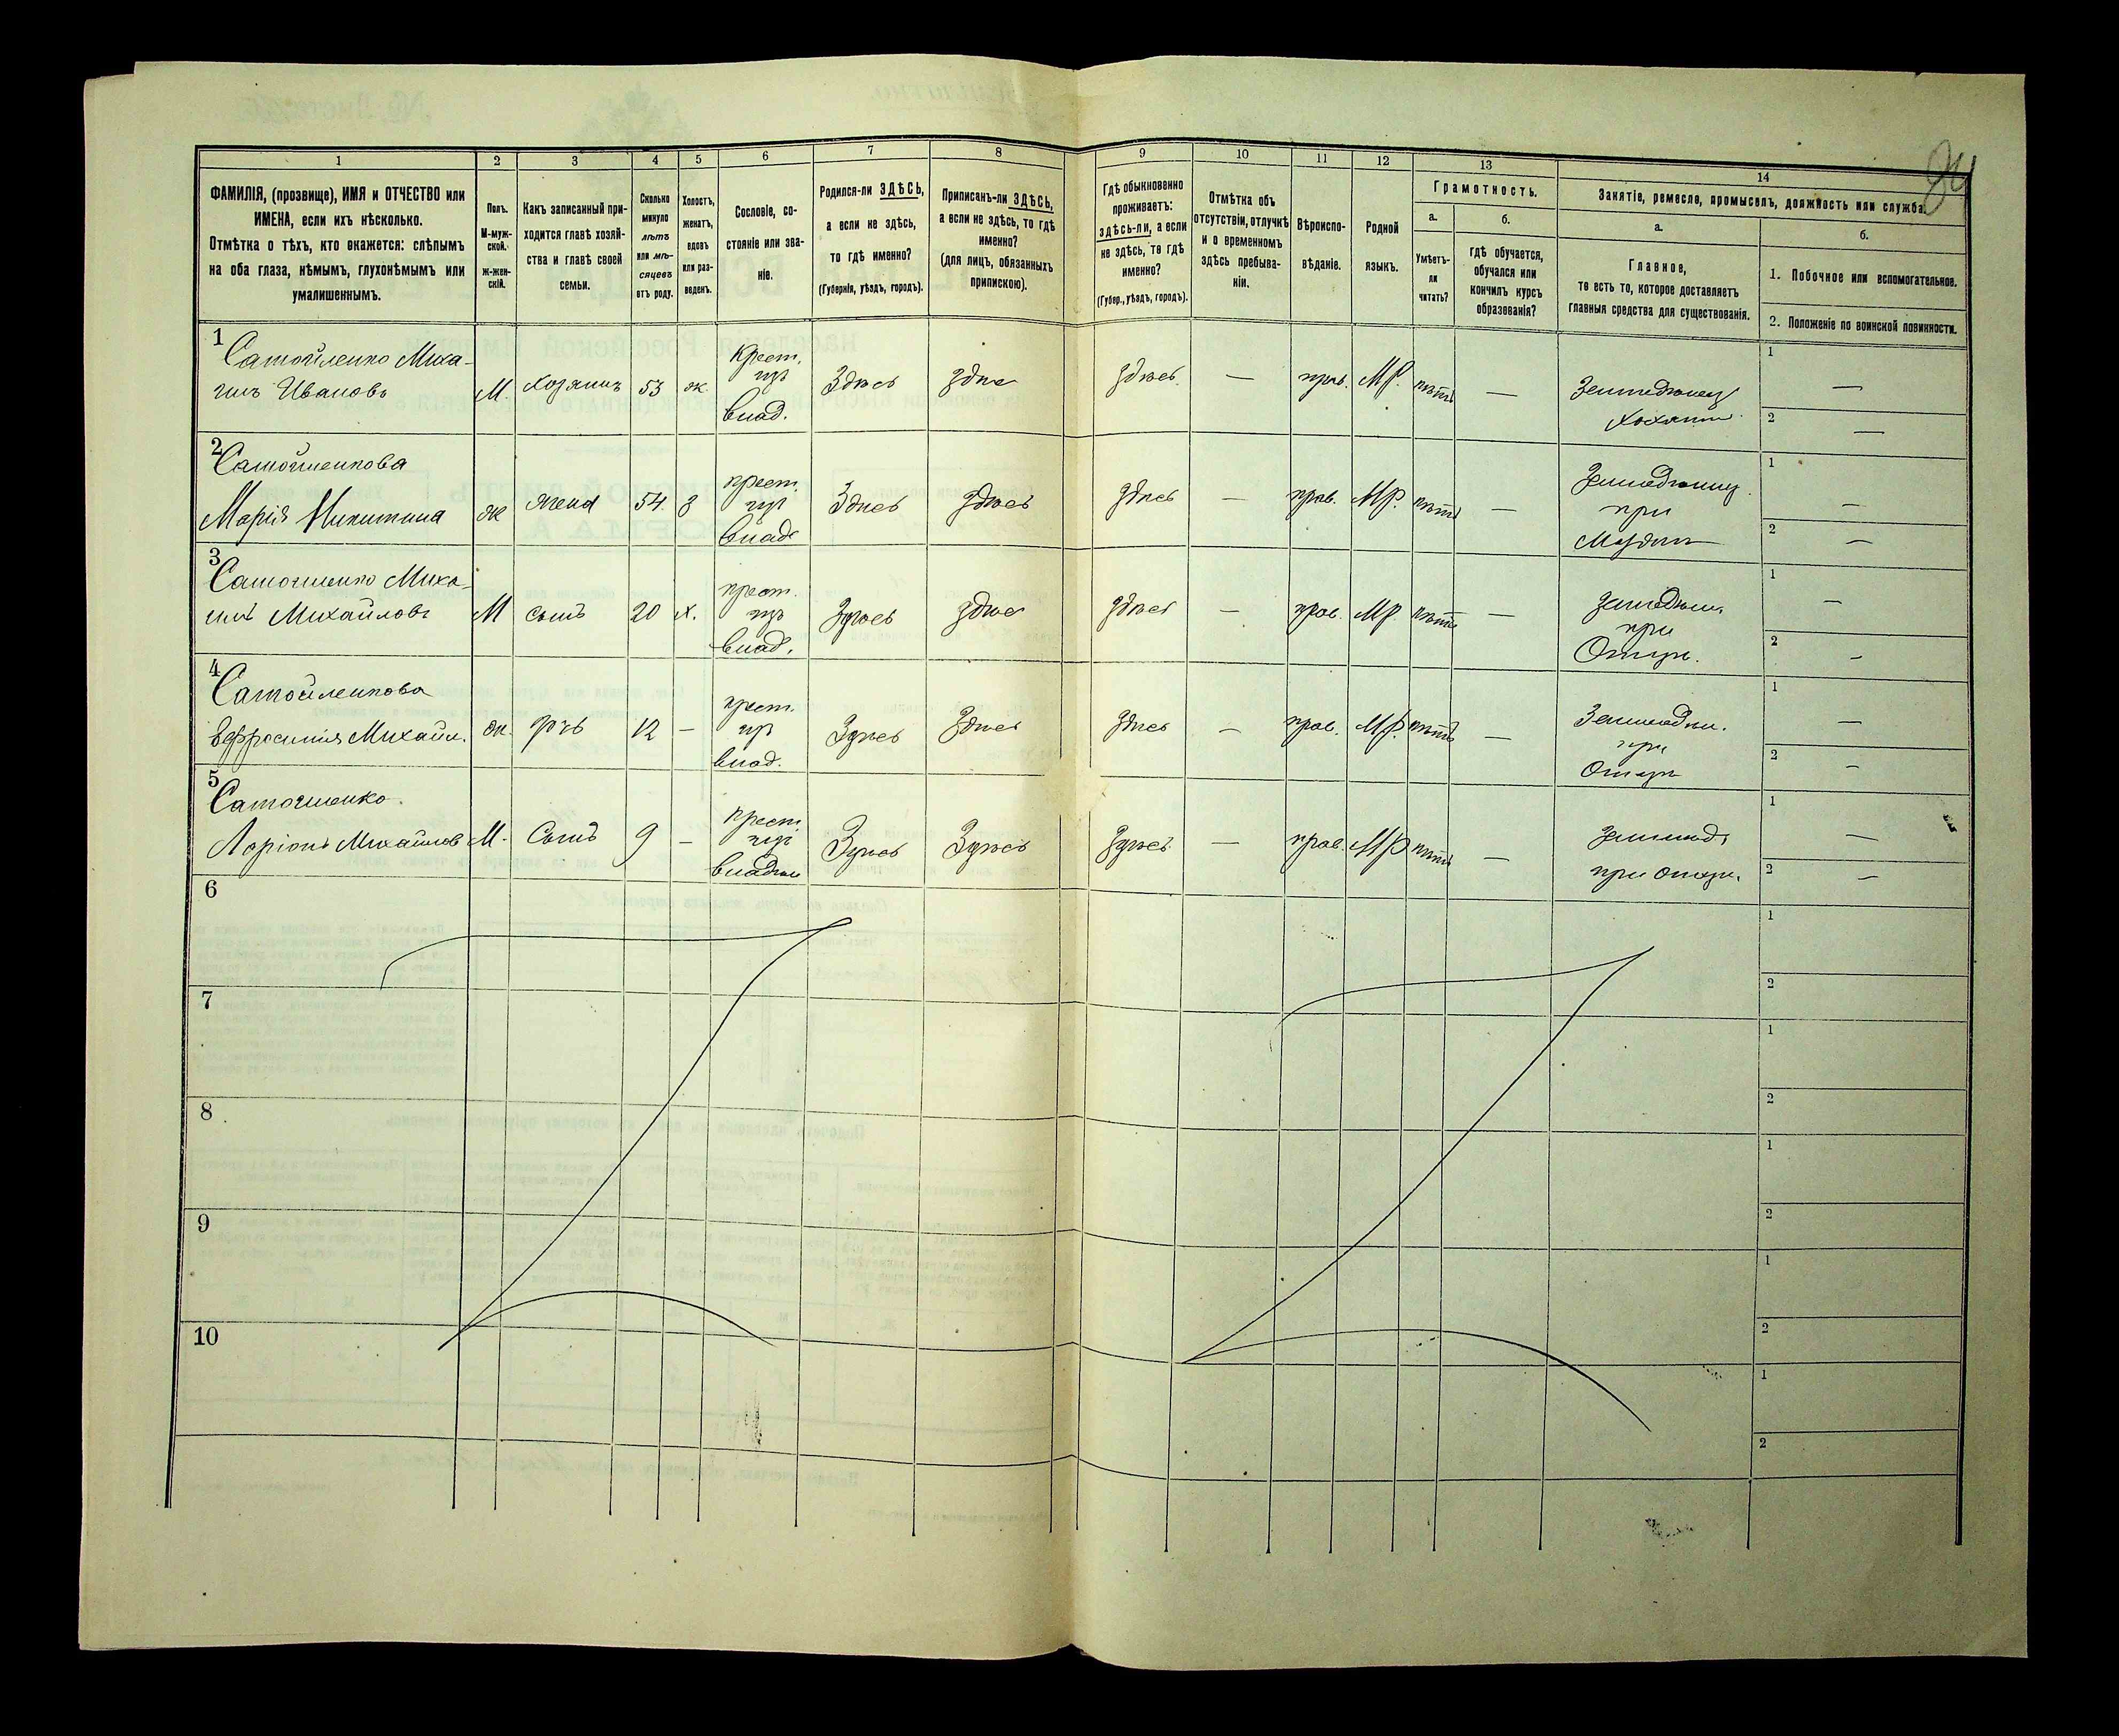 1 2 3 4 5 6 7 8 9 10 11 12 13 14
ФАМИЛІЯ, (прозвище), ИМЯ и ОТЧЕСТВО или
ИМЕНА, если ихъ нѣсколько.
Отмѣтка о тѣхъ, кто окажется: слѣпымъ
на оба глаза, нѣмымъ, глухонѣмымъ или
умалишеннымъ.
Полъ.
М-муж-
ской.
Ж-жен-
скій.
Какъ записанный при-
ходится главѣ хозяй-
ства и главѣ своей
семьи.
Сколько
минуло
лѣтъ
или мѣ-
сяцевъ
отъ роду.
Холостъ,
женатъ,
вдовъ
или раз-
веденъ.
Сословіе, со-
стояніе или зва-
ніе.
Родился-ли ЗДѢСЬ,
а если не здѣсь,
то гдѣ именно?
(Губернія, уѣздъ, городъ).
Приписанъ-ли ЗДѢСЬ,
а если не здѣсь, то гдѣ
именно?
(для лицъ, обязанныхъ
припискою).
Гдѣ обыкновенно
проживаетъ:
здѣсь-ли, а если
не здѣсь, то гдѣ
именно?
(Губер., уѣздъ, городъ).
Отмѣтка объ
отсутствіи, отлучкѣ
и о временномъ
здѣсь пребыва-
ніи.
Вѣроиспо-
вѣданіе.
Родной
языкъ.
Грамотность.
а.
Умѣетъ-
ли
читать?
б.
гдѣ обучается,
обучался или
кончилъ курсъ
образованія?
Занятіе, ремесло, промыселъ, должность или служба.
а.
Главное,
то есть то, которое доставляетъ
главныя средства для существованія.
б.
1. Побочное или вспомогательное.
2. Положеніе по воинской повинности.
1
Самойленко Миха-
илъ Ивановъ
М. Хозяинъ 53 ж.
Крест.
изъ
влад.
Здѣсь здѣсь здѣсь — прав. МР. нѣтъ —
Земледѣлец
хозяинъ
1 —
2 —
2
Самойленкова
Марія Никитина
ж жена 54. з
крест.
изъ
влад.
Здѣсь здѣсь здѣсь — прав. МР. нѣтъ —
при
1 —
2 —
3
Самойленко Миха-
илъ Михайловъ
М сынъ 20 х.
крест.
изъ
влад.
Здѣсь здѣсь здѣсь — прав. МР. нѣтъ —
земледѣл.
при
Отцѣ.
1 —
2 —
4
Самойленкова
Ефросинія Михайл.
ж. дочь 12 —
крест.
изъ
влад.
Здѣсь Здѣсь здѣсь — прав. МР. нѣтъ —
Земледѣл.
при
Отцѣ
1 —
2 —
5
Самойленко
Ларіонъ Михайлов
М. Сынъ 9 —
крест.
изъ
Здѣсь Здѣсь здѣсь — прав. МР нѣтъ —
землед.
при отцѣ.
1 —
2 —
6
1
2
7
1
2
8
1
2
9
1
2
10
1
2